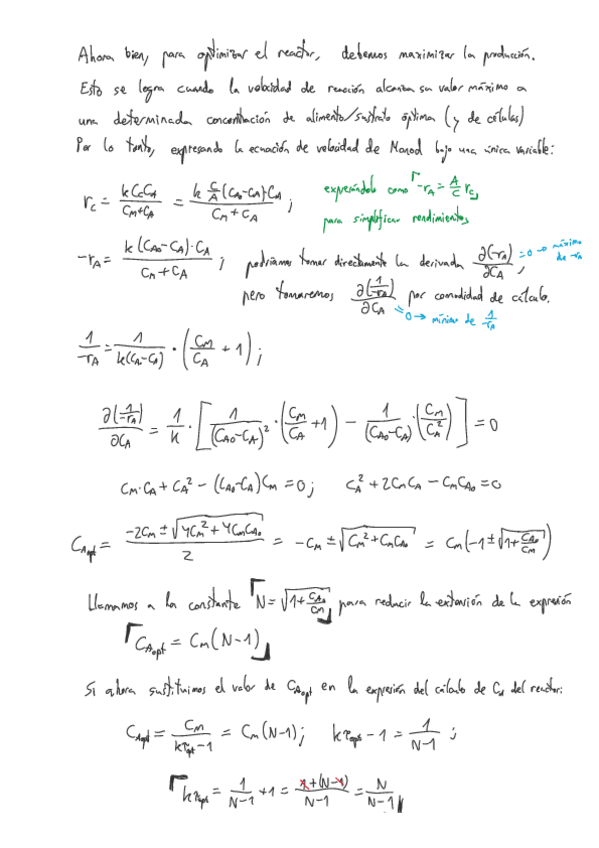 Ahora bien, para optimizar el reactor, debemos maximizar la producción.
Esto se logra cuando la velocidad de reacción alcanza su valor máximo a
una determinada concentración de alimento/sustrato óptima (y de células)
Por lo tanto, expresando la ecuación de velocidad de Monod bajo una única variable:
r_C = k C_C C_A / (C_M + C_A) = k C/A (C_A0 - C_A)·C_A / (C_M + C_A) ; expresándolo como ⌈-r_A = A/C r_C⌋
para simplificar rendimientos
-r_A = k (C_A0 - C_A)·C_A / (C_M + C_A) ; podríamos tomar directamente la derivada ∂(-r_A)/∂C_A , =0 → máximo de -r_A
pero tomaremos ∂(1/-r_A)/∂C_A por comodidad de cálculo. =0 → mínimo de 1/-r_A
1/-r_A = 1/(k(C_A0 - C_A)) · (C_M/C_A + 1) ;
∂(1/-r_A)/∂C_A = 1/k · [1/(C_A0 - C_A)² · (C_M/C_A + 1) - 1/(C_A0 - C_A) · (C_M/C_A²)] = 0
C_M·C_A + C_A² - (C_A0 - C_A)C_M = 0 ; C_A² + 2C_M C_A - C_M C_A0 = 0
C_Aopt = (-2C_M ± √(4C_M² + 4C_M C_A0)) / 2 = -C_M ± √(C_M² + C_M C_A0) = C_M(-1 ± √(1 + C_A0/C_M))
Llamamos a la constante ⌈N = √(1 + C_A0/C_M)⌋ para reducir la extensión de la expresión
⌈C_Aopt = C_M(N-1)⌋
Si ahora sustituimos el valor de C_Aopt en la expresión del cálculo de C_A del reactor:
C_Aopt = C_M / (kτ_opt - 1) = C_M(N-1) ; kτ_opt - 1 = 1/(N-1) ;
⌈kτ_opt = 1/(N-1) + 1 = (1 + (N-1))/(N-1) = N/(N-1)⌋